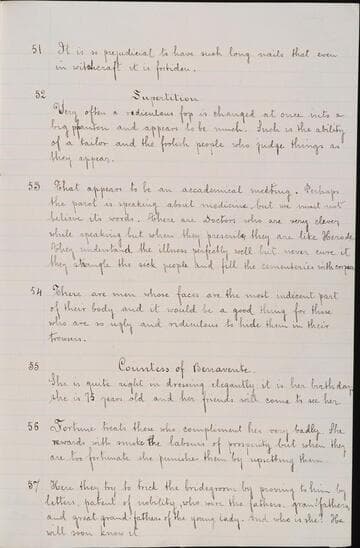 51 It is so prejudicial to have such long nails that even
in witchcraft it is forbiden.
52 Supertition
Very often a rediculous fop is changed at once into a
big phanton and appears to be much. Such is the ability
of a tailor and the foolish people who judge things as
they appear.
53 That appears to be an accademical meeting. Perhaps
the parot is speaking about medicine, but we must not
believe its words. There are Doctors who are very clever
while speaking but when they prescribe they are like Herode
They understand the illness perfectly well but never cure it
they strangle the sick people and fill the cementeries with corpses
54 There are men whose faces are the most indecent part
of their body and it would be a good thing for those
who are so ugly and rediculous to hide them in their
trowers.
55 Countess of Benavente.
She is quite right in dressing elegantly it is her birthday
she is 75 years old and her friends will come to see her
56 Fortune treats those who complement her very badly. She
rewards with smoke the labours of prosperity but when they
are too fortunate she punishes them by upsetting them
57 Here they try to trick the bridegroom by proving to him by
letters, patent of nobility who were the fathers, grandfathers
and great grand-fathers of the young lady. And who is she? He
will soon know it